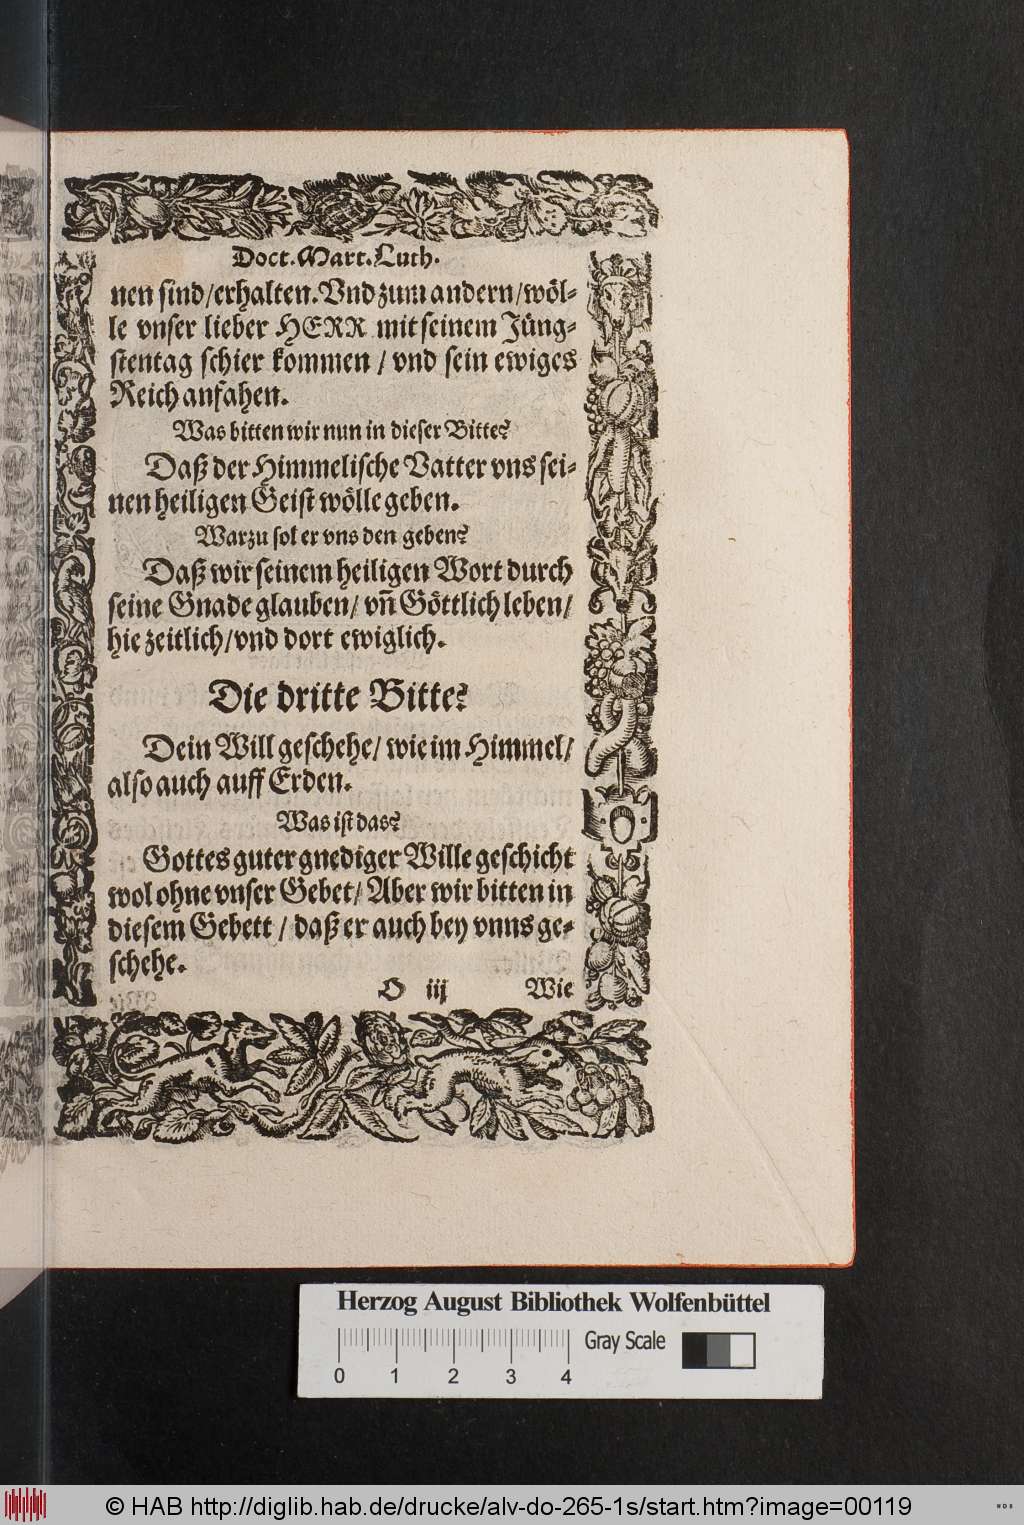 Doct. Mart. Luth.
nen sind/erhalten. Vnd zum andern/wöl-
le vnser lieber HERR mit seinem Jüng-
stentag schier kommen / vnd sein ewiges
Reich anfahen.
Was bitten wir nun in dieser Bitte?
Daß der Himmelische Vatter vns sei-
nen heiligen Geist wölle geben.
Warzu sol er vns den geben?
Daß wir seinem heiligen Wort durch
seine Gnade glauben/ vñ Göttlich leben/
hie zeitlich/vnd dort ewiglich.
Die dritte Bitte?
Dein Will geschehe/ wie im Himmel/
also auch auff Erden.
Was ist das?
Gottes guter gnediger Wille geschicht
wol ohne vnser Gebet/ Aber wir bitten in
diesem Gebett / daß er auch bey vnns ge-
schehe.
O iij Wie
Herzog August Bibliothek Wolfenbüttel
0 1 2 3 4 Gray Scale
© HAB http://diglib.hab.de/drucke/alv-do-265-1s/start.htm?image=00119